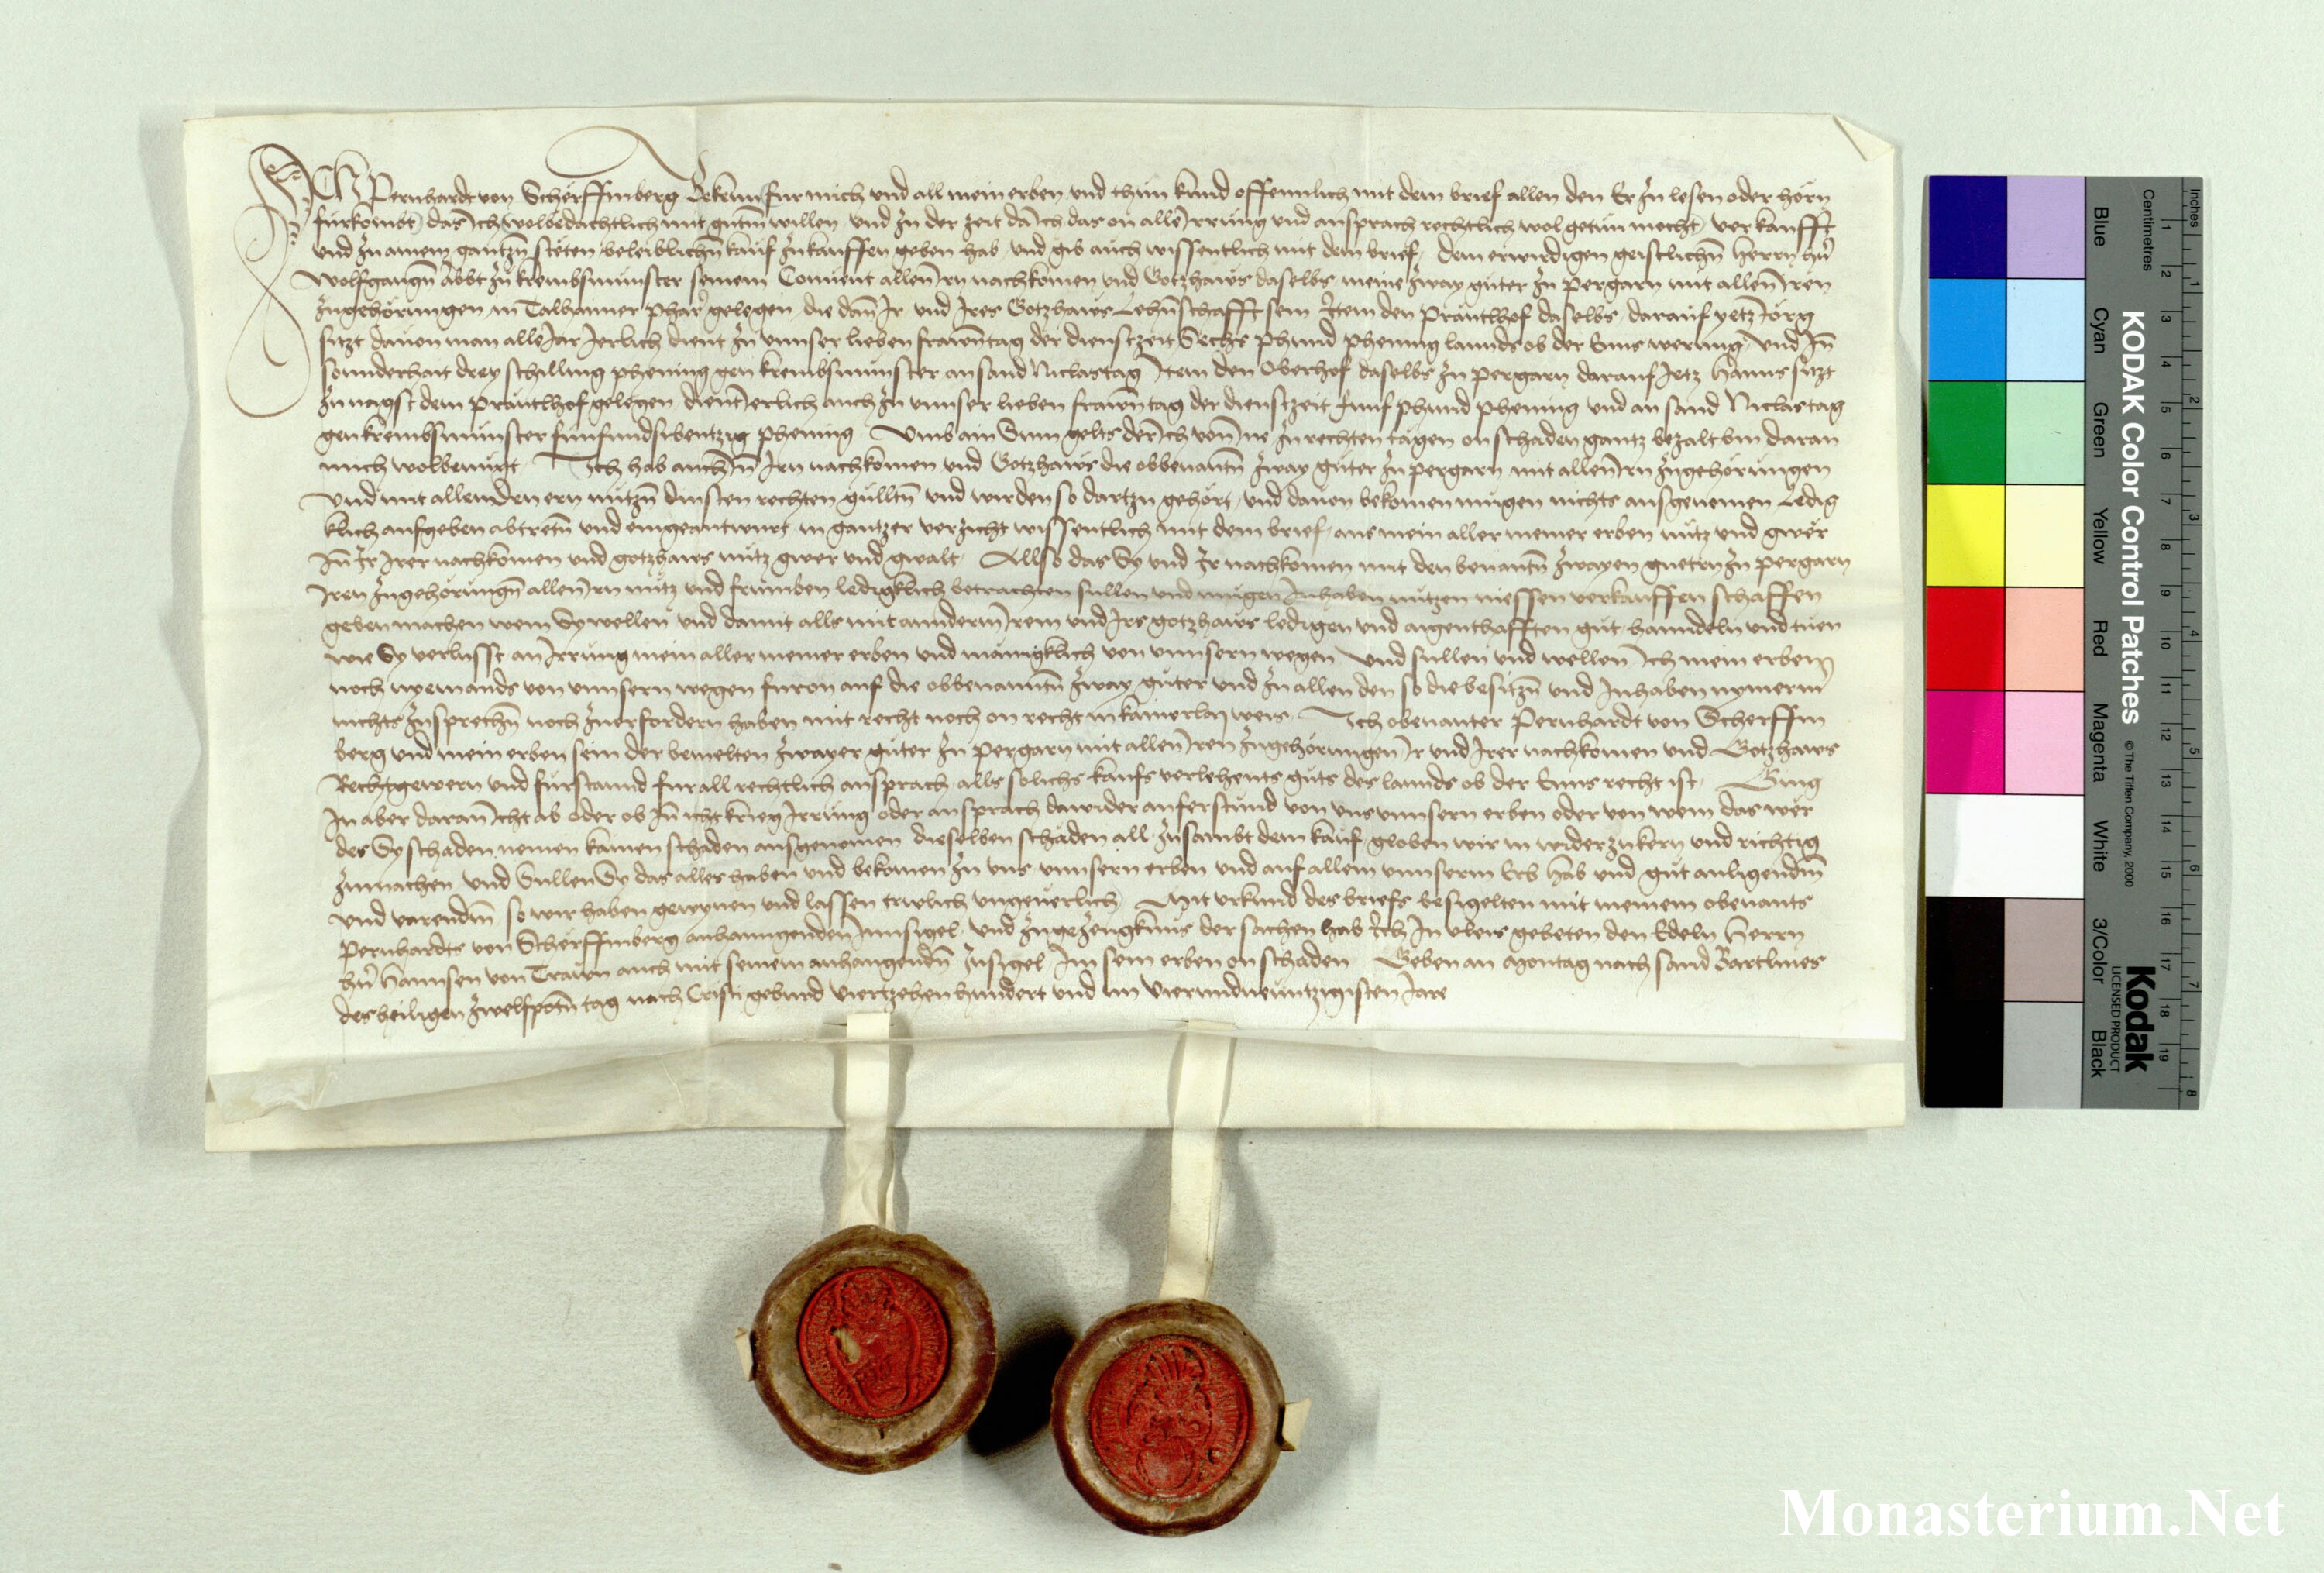 Ich Pernhardt von Scherffinberg Bekenn fur mich und all mein erben und thun kund offennlich mit dem brief allen den Er zu lesen oder horn
furkombt das Ich wolbedachtlich mit gutm willen und zu der zeit da Ich das on alle Irrung und ansprach rechtlich wol getun mocht verkaufft
und zu ainem gantzn stëten beleiblichn kauf zukauffen geben hab und gib auch wissentlich mit dem brief dem erwirdigen geistlichn herrn hrn
Wolfgangn Abbt zu krembsmunster seinem Convent allen Irn nachkomen und Gotzhaws daselbs meine zway guter zu pergarn mit allen Iren
zugehörungen in Talhaimer pharr gelegen die dan Ir und Ires Gotzhaws Lehnschafft sein Item den präutlhof daselbs darauf yetz Jörg
sitzt dauon man alle Jar Jerlich dient zu unnser lieben frawntag der dienstzeit Sechs phund phening lannds ob der Enns werung und In
sonnderhait drey schilling phening gen krembsmunster an sand Niclastag Item den Oberhof daselbs zu pergarn darauf Jetz Hanns sitzt
zunagst dem präutlhof gelegen dient Jerlich auch zu unnser lieben frawn tag der dienstzeit funf phund phening und an sand Niclastag
gen krembsmunster funfundsibentzig phening Umb ain Sum gelts der Ich von Ine zu rechten tägen on schaden gantz bezalt bin daran
mich wolbenugt Ich hab auch In Irn nachkomen und Gotzhaws die obbenantn zway guter zu pergarn mit allen Irn zugehörungen
und mit allen den ern nutzn dinsten rechten gulltn und wirden so dartzu gehört und dauon bekomen mugen nichts ausgenomen Ledig
klich aufgeben abtretn und eingeantwurt in gantzer verzicht wissentlich mit dem brief aus mein aller meiner erben nutz und gwër
In Ir Irer nachkomen und gotzhaws nutz gwer und gwalt Allso das Sy und Ir nachkomen mit den benantn zwayen guetrn zu pergarn
Iren zugehörungn allen Irn nutz und frumben ledigklich betrachten sullen und mugen Inhaben nutzen niessen verkauffen schaffen
geben machen wem Sy wellen und damit alls mit anndern Irem und Irs gotzhaws ledigen und aigenthafften gut hanndeln und tuen
wie Sy verlusst an Irrung mein aller meiner erben und mänigklich von unnsern wegen Und sullen und wellen Ich mein erben
noch nyemands von unnsern wegen furon auf die obbenanntn zway guter und zu allen den so die besitzn und Inhaben nymerm
nichts zusprechn noch zuerfordern haben mit recht noch on recht in kainerlay weis Ich obenanter Pernhardt von Scherffin
berg und mein erben sein der bemelten zwayer guter zu pergarn mit allen Iren zugehörungen Ir und Irer nachkomen und Gotzhaws
Recht gewern und furstannd fur all rechtlich ansprach alls solichs kaufs verlehents guts des lannds ob der Enns recht ist Ging
In aber daran Icht ab oder ob In icht krieg Irrung oder ansprach dawider auferstund von uns unnsern erben oder von wem das wër
des Sy schaden nemen kainen schaden ausgenomen dieselben schäden all zusambt dem kauf geloben wir in widerzukern und richtig
zumachen und Sullen Sy das alles haben und bekomen zu uns unnsern erben und auf allem unnserm Erb hab und gut anligendm
und varendm so wir haben gewynen und lassen trwlich ungeuerlich Mit urkund des briefs besigelten mit meinem obenants
Pernhardts von Scherffinberg anhanngenden Innsigel und zu gezeugknus der sachen hab Ich In vleis gebeten den Edeln Herrn
hrn Hannsen von Trawn auch mit seinem anhangendn Insigel Im sein erben on schaden Geben an Montag nach sand Bartlmes
des heiligen zwelfpotn tag nach Cristi geburd viertzehenhundert und im vierundneuntzigisten Jare
KODAK Color Control Patches © The Tiffen Company, 2000
Kodak
LICENSED PRODUCT
Inches
Centimetres
1 2 3 4 5 6 7 8
1 2 3 4 5 6 7 8 9 10 11 12 13 14 15 16 17 18 19
Blue Cyan Green Yellow Red Magenta White 3/Color Black
Monasterium.Net